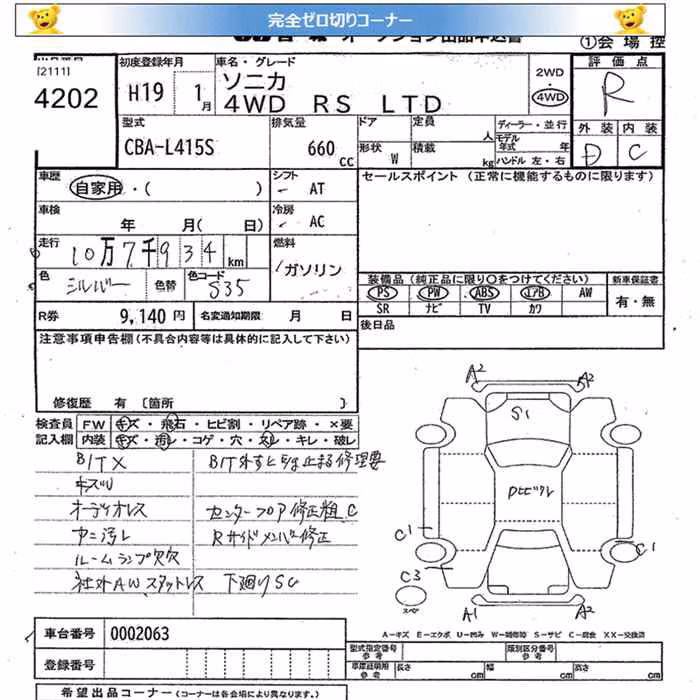 完全ゼロ切りコーナー
オークション出品申込書 ①会場控
[2111]
4202
初度登録年月 車名・グレード 評価点
H19 1月 ソニカ 2WD R
4WD RS LTD 4WD
型式 排気量 ドア 定員 ディーラー・並行 外装 内装
CBA-L415S 660 CC 形状 W 積載 人 kg モデル年式 年 ハンドル 左・右 D C
車歴 シフト セールスポイント (正常に機能するものに限ります)
自家用・( ) AT
車検 冷房
年 月( 日) AC
走行 燃料
10万7千934 km ガソリン
色 色替 色コード 装備品 (純正品に限り○をつけてください) 新車保証書
シルバー S35 PS PW ABS エアB AW 有・無
SR ナビ TV カワ
R券 9,140円 名変通知期限 月 日 後日品
注意事項申告欄(不具合内容等は具体的に記入して下さい)
修復歴 有 〔箇所 〕
検査員 FW キズ・飛石・ヒビ割・リペア跡・×要
記入欄 内装 キズ・汚レ・コゲ・穴・スレ・キレ・破レ
キズU
オーディオレス センターフロア修正粗、C
ヤニ汚レ Rサイドメンバー修正
ルームランプ欠穴
社外AW スタットレス 下廻りSC
A2 A2
S1
C1 C1
C3
スペア
A1 A2
A-キズ E-エクボ U-凹み W-補修跡 S-サビ C-腐食 XX-交換済
車台番号 0002063
型式指定番号 参考 類別区分番号 参考
登録番号
車庫証明用 参考 長さ cm 幅 cm 高さ cm
希望出品コーナー (コーナーは各会場により異なります。)